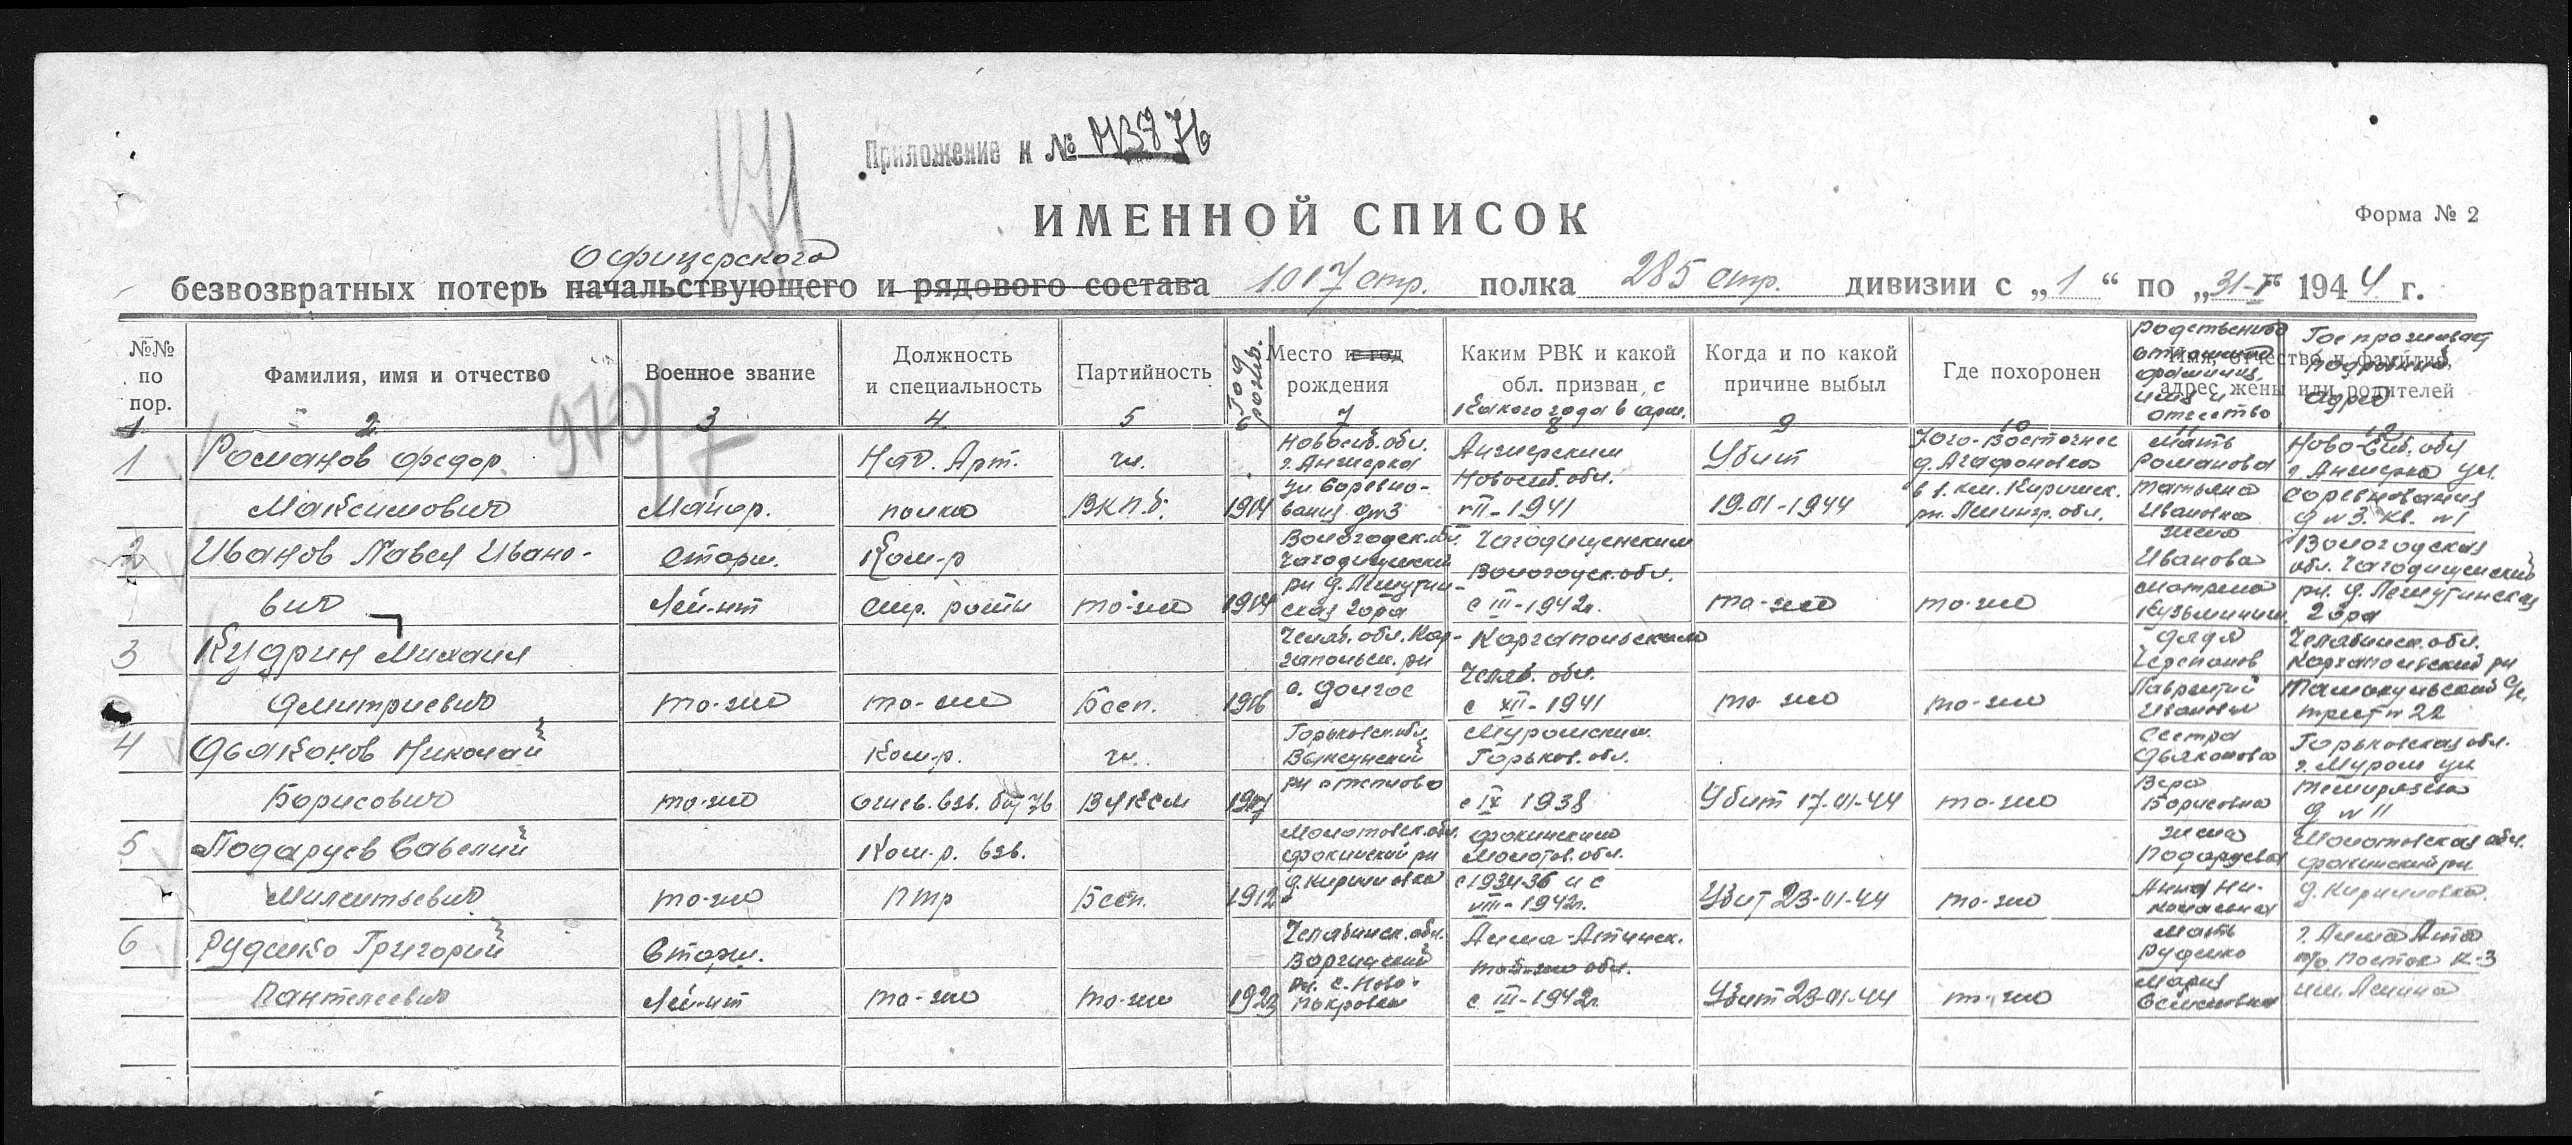 Приложение к № 1/1387 76
ИМЕННОЙ СПИСОК
Форма № 2
Офицерского
безвозвратных потерь начальствующего и рядового состава 1017 стр. полка 285 стр. дивизии с „1“ по „31-I“ 1944 г.
№№ по пор.
Фамилия, имя и отчество
Военное звание
Должность и специальность
Партийность
Год рожд.
Место и год рождения
Каким РВК и какой обл. призван, с какого года в арм.
Когда и по какой причине выбыл
Где похоронен
Имя, отчество и фамилия, адрес жены или родителей
Родственное отношение фамилия, имя и отчество
Где проживает подробный адрес
1 2 3 4 5 6 7 8 9 10 11 12
1 Романов Федор Нач. Арт. чл. Новосиб. обл. Анжерским Убит Юго-Восточнее Мать Ново-Сиб. обл
г. Анжерка д. Агафоновка Романова г. Анжерка ул.
ул Соревно- Новосиб. обл. в 1. км. Киришск. Татьяна Соревнования
Максимович Майор. полка ВКП.б. 1904 вания дт3 VII-1941 19.01-1944 рн. Ленингр. обл. Ивановна д № 3. кв. №1
2 Иванов Павел Ивано- Старш. Ком-р Вологодск. обл. Чагодищенским жена Вологодская
Чагодищенский Вологодск. обл. Иванова обл. Чагодищенский
вич Лей-нт стр. роты то-же 1904 рн д. ская гора с III-1942г. то-же то-же Матрена Кузьминич. рн. д. гора
3 Кудрин Михаил Челяб. обл. Кар- Каргапольским дядя Челябинск. обл.
гапольск. рн Черепанов Каргапольский рн
Дмитриевич то-же то-же Бесп. 1916 с. Долгое Челяб. обл. с XII-1941 то-же то-же Лаврентий
4 Дьяконов Николай Ком-р. чл. Горьковск. обл. Муромским. Сестра Горьковская обл.
Выксунский Горьков. обл. Дьяконова г. Муром ул
Борисович то-же огнев. взв. бат 76 ВЛКСМ рн с IX 1938 Убит 17-01-44 то-же Вера Борисовна Темирязева д № 11
5 Подаруев Савелий Ком-р. взв. Молотовск. обл. Фокинским жена Молотовская обл.
Фокинский рн Молотов. обл. Подаруева Фокинский рн
Милентьевич то-же ПТР Бесп. 1912 д. Кирилловка с 1934-36 и с VIII-1942г. Убит 23-01-44 то-же Анна Ни-колаевна д. Кирилловка.
6 Руденко Григорий Старш. Челябинск. обл. Алма-Атинск. Мать г. Алма Ата
той-же обл. Руденко п/о. Поселок К-З
Пантелеевич Лей-нт то-же то-же 1922 рн. с. Ново-Покровка с III-1942г. Убит 23-01-44 то-же Мария Семеновна им. Ленина